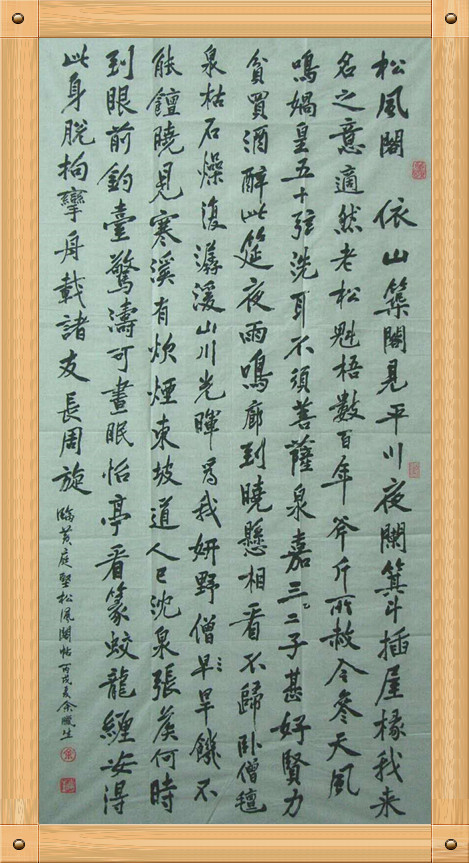 松風閣 依山築閣見平川夜闌箕斗插屋椽我来
名之意適然老松魁梧數百年斧斤所赦今參天風
鳴媧皇五十弦洗耳不須菩薩泉嘉三二子甚好賢力
貧買酒醉此筵夜雨鳴廊到曉懸相看不歸卧僧氈
泉枯石燥復潺湲山川光暉為我妍野僧早旱饑不
能饘曉見寒溪有炊煙東坡道人已沈泉張侯何時
到眼前釣臺驚濤可晝眠怡亭看篆蛟龍纏安得
此身脫拘攣舟載諸友長周旋
臨黃庭堅松風閣帖丙戌夏余生